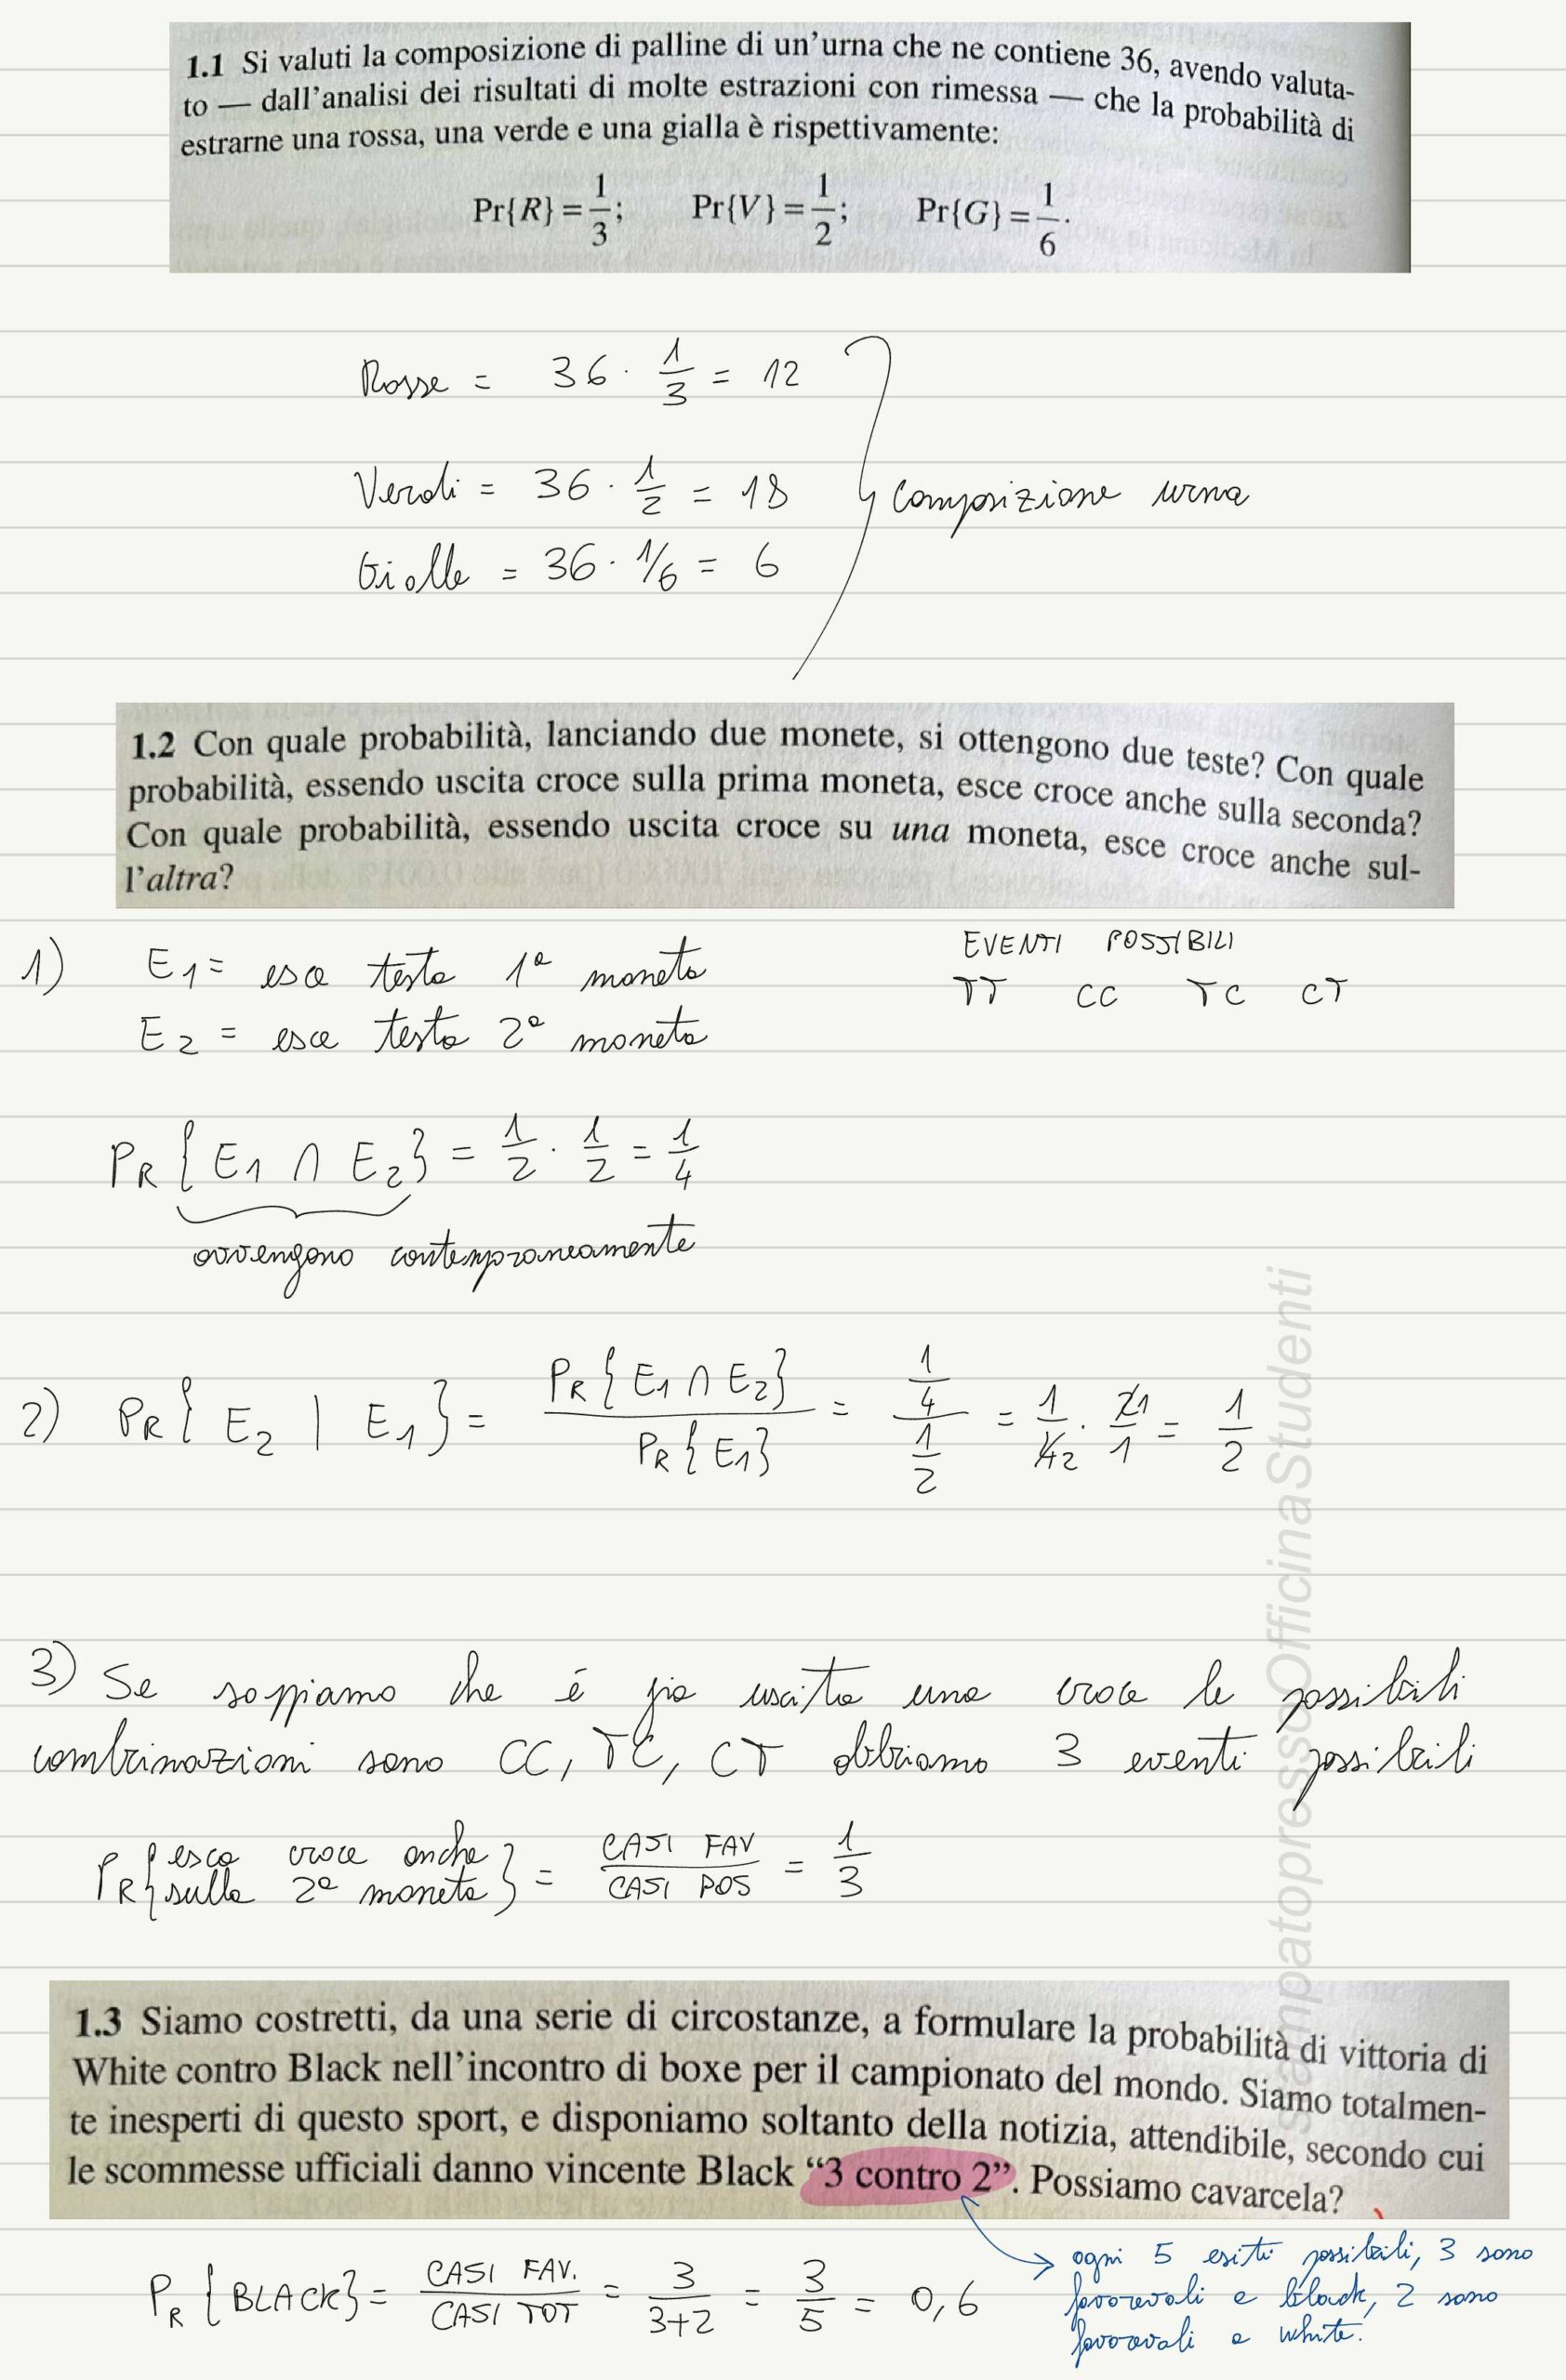 1.1 Si valuti la composizione di palline di un'urna che ne contiene 36, avendo valuta-
to — dall'analisi dei risultati di molte estrazioni con rimessa — che la probabilità di
estrarne una rossa, una verde e una gialla è rispettivamente:
Pr{R} = 1/3; Pr{V} = 1/2; Pr{G} = 1/6.
Rosse = 36 · 1/3 = 12
Verdi = 36 · 1/2 = 18
Composizione urna
Gialle = 36 · 1/6 = 6
1.2 Con quale probabilità, lanciando due monete, si ottengono due teste? Con quale
probabilità, essendo uscita croce sulla prima moneta, esce croce anche sulla seconda?
Con quale probabilità, essendo uscita croce su una moneta, esce croce anche sul-
l'altra?
1) E1 = esce testa 1ª moneta
E2 = esce testa 2ª moneta
EVENTI POSSIBILI
TT CC TC CT
PR{E1 ∩ E2} = 1/2 · 1/2 = 1/4
avvengono contemporaneamente
2) PR{E2 | E1} = PR{E1 ∩ E2} / PR{E1} = 1/4 / 1/2 = 1/42 · 21/1 = 1/2
3) Se sappiamo che é già uscita una croce le possibili
combinazioni sono CC, TC, CT abbiamo 3 eventi possibili
PR{esca croce anche sulla 2ª moneta} = CASI FAV / CASI POS = 1/3
1.3 Siamo costretti, da una serie di circostanze, a formulare la probabilità di vittoria di
White contro Black nell'incontro di boxe per il campionato del mondo. Siamo totalmen-
te inesperti di questo sport, e disponiamo soltanto della notizia, attendibile, secondo cui
le scommesse ufficiali danno vincente Black “3 contro 2”. Possiamo cavarcela?
PR{BLACK} = CASI FAV. / CASI TOT = 3 / 3+2 = 3/5 = 0,6
ogni 5 esiti possibili, 3 sono
favorevoli a black, 2 sono
favorevoli a white.
StampatopressoOfficinaStudenti